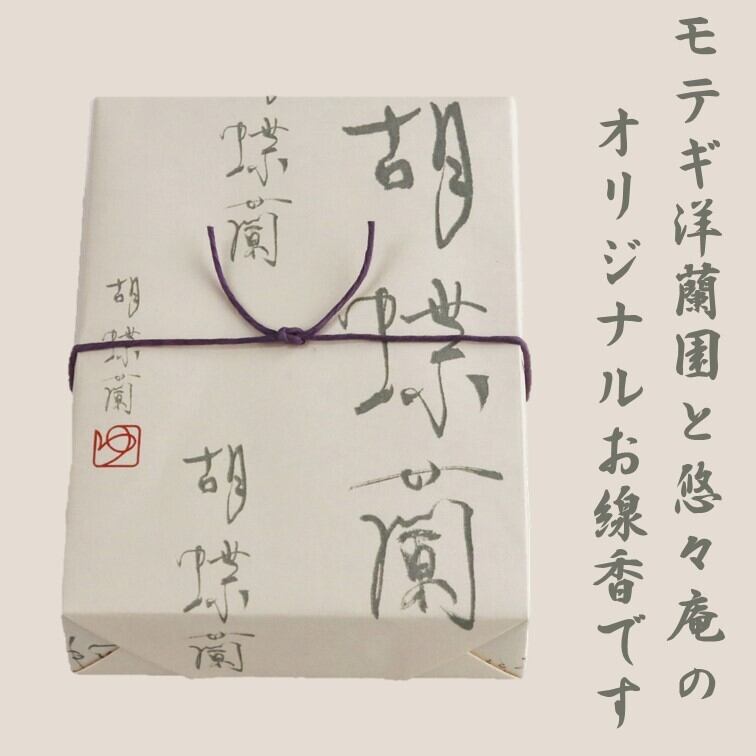 モテギ洋蘭園と悠々庵の
オリジナルお線香です
胡蝶蘭
蝶蘭
胡蝶蘭
胡蝶蘭
ゆ